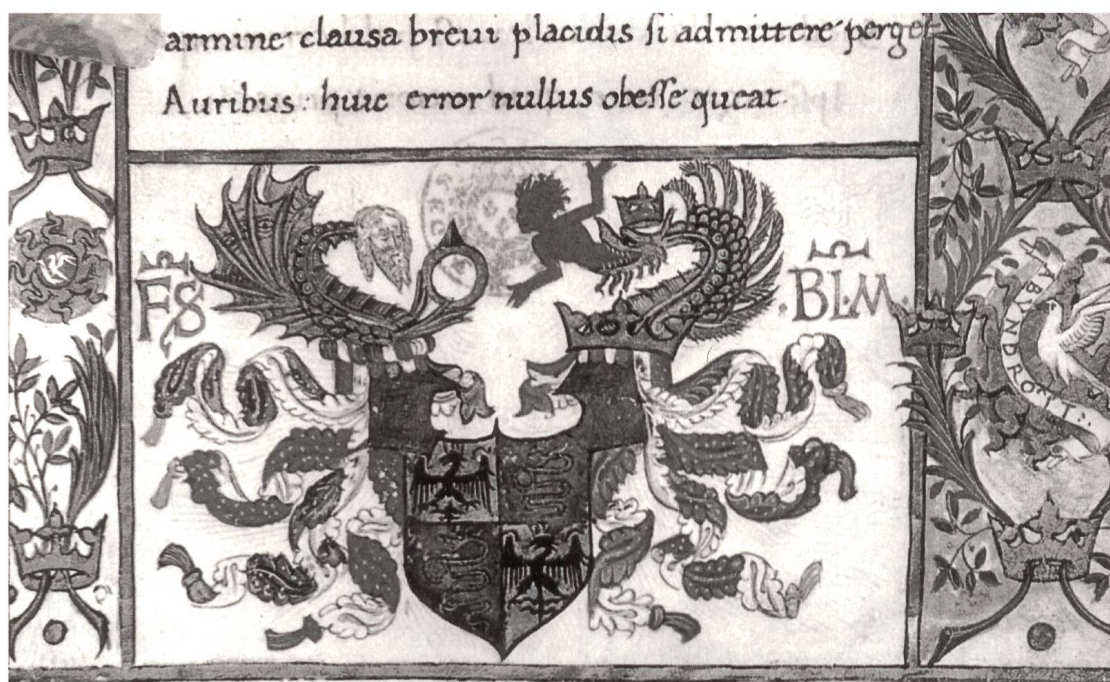 armine clausa breui placidis si admittere perget
Auribus: huic error nullus obesse queat.
FS
.BL.M.
A BVN DROIT